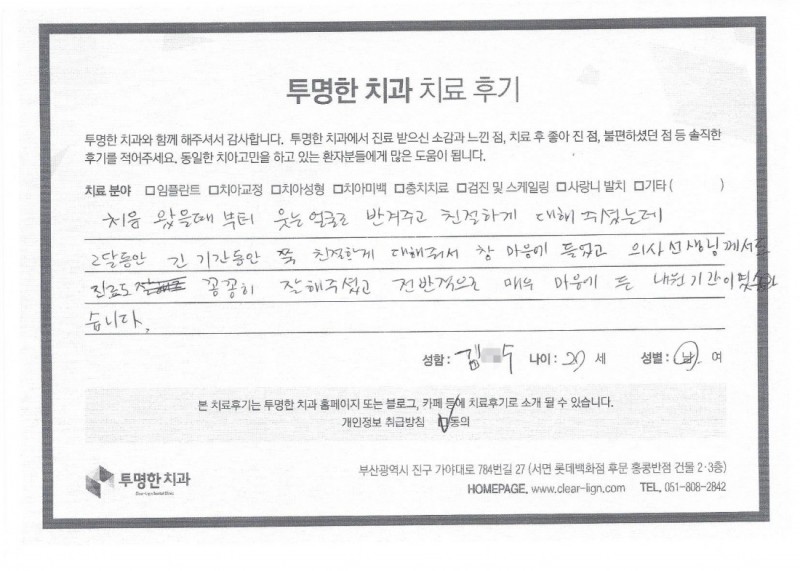 투명한 치과 치료 후기
투명한 치과와 함께 해주셔서 감사합니다. 투명한 치과에서 진료 받으신 소감과 느낀 점, 치료 후 좋아 진 점, 불편하셨던 점 등 솔직한
후기를 적어주세요. 동일한 치아고민을 하고 있는 환자분들에게 많은 도움이 됩니다.
치료 분야 □임플란트 □치아교정 □치아성형 □치아미백 □충치치료 □검진 및 스케일링 □사랑니 발치 □기타 ( )
처음 왔을때 부터 웃는얼굴로 반겨주고 친절하게 대해 주셨는데
2달동안 긴 기간동안 쭉 친절하게 대해줘서 참 마음에 들었고 의사선생님께서도
진료도 꼼꼼히 잘해주셨고 전반적으로 매우 마음에 든 내원기간이
습니다.
성함 : 김 수 나이 : 세 성별 : 남 여
본 치료후기는 투명한 치과 홈페이지 또는 블로그, 카페 등에 치료후기로 소개 될 수 있습니다.
개인정보 취급방침 □동의
투명한 치과
부산광역시 진구 가야대로 784번길 27 (서면 롯데백화점 후문 홍콩반점 건물 2·3층)
HOMEPAGE. www.clear-lign.com TEL. 051-808-2842